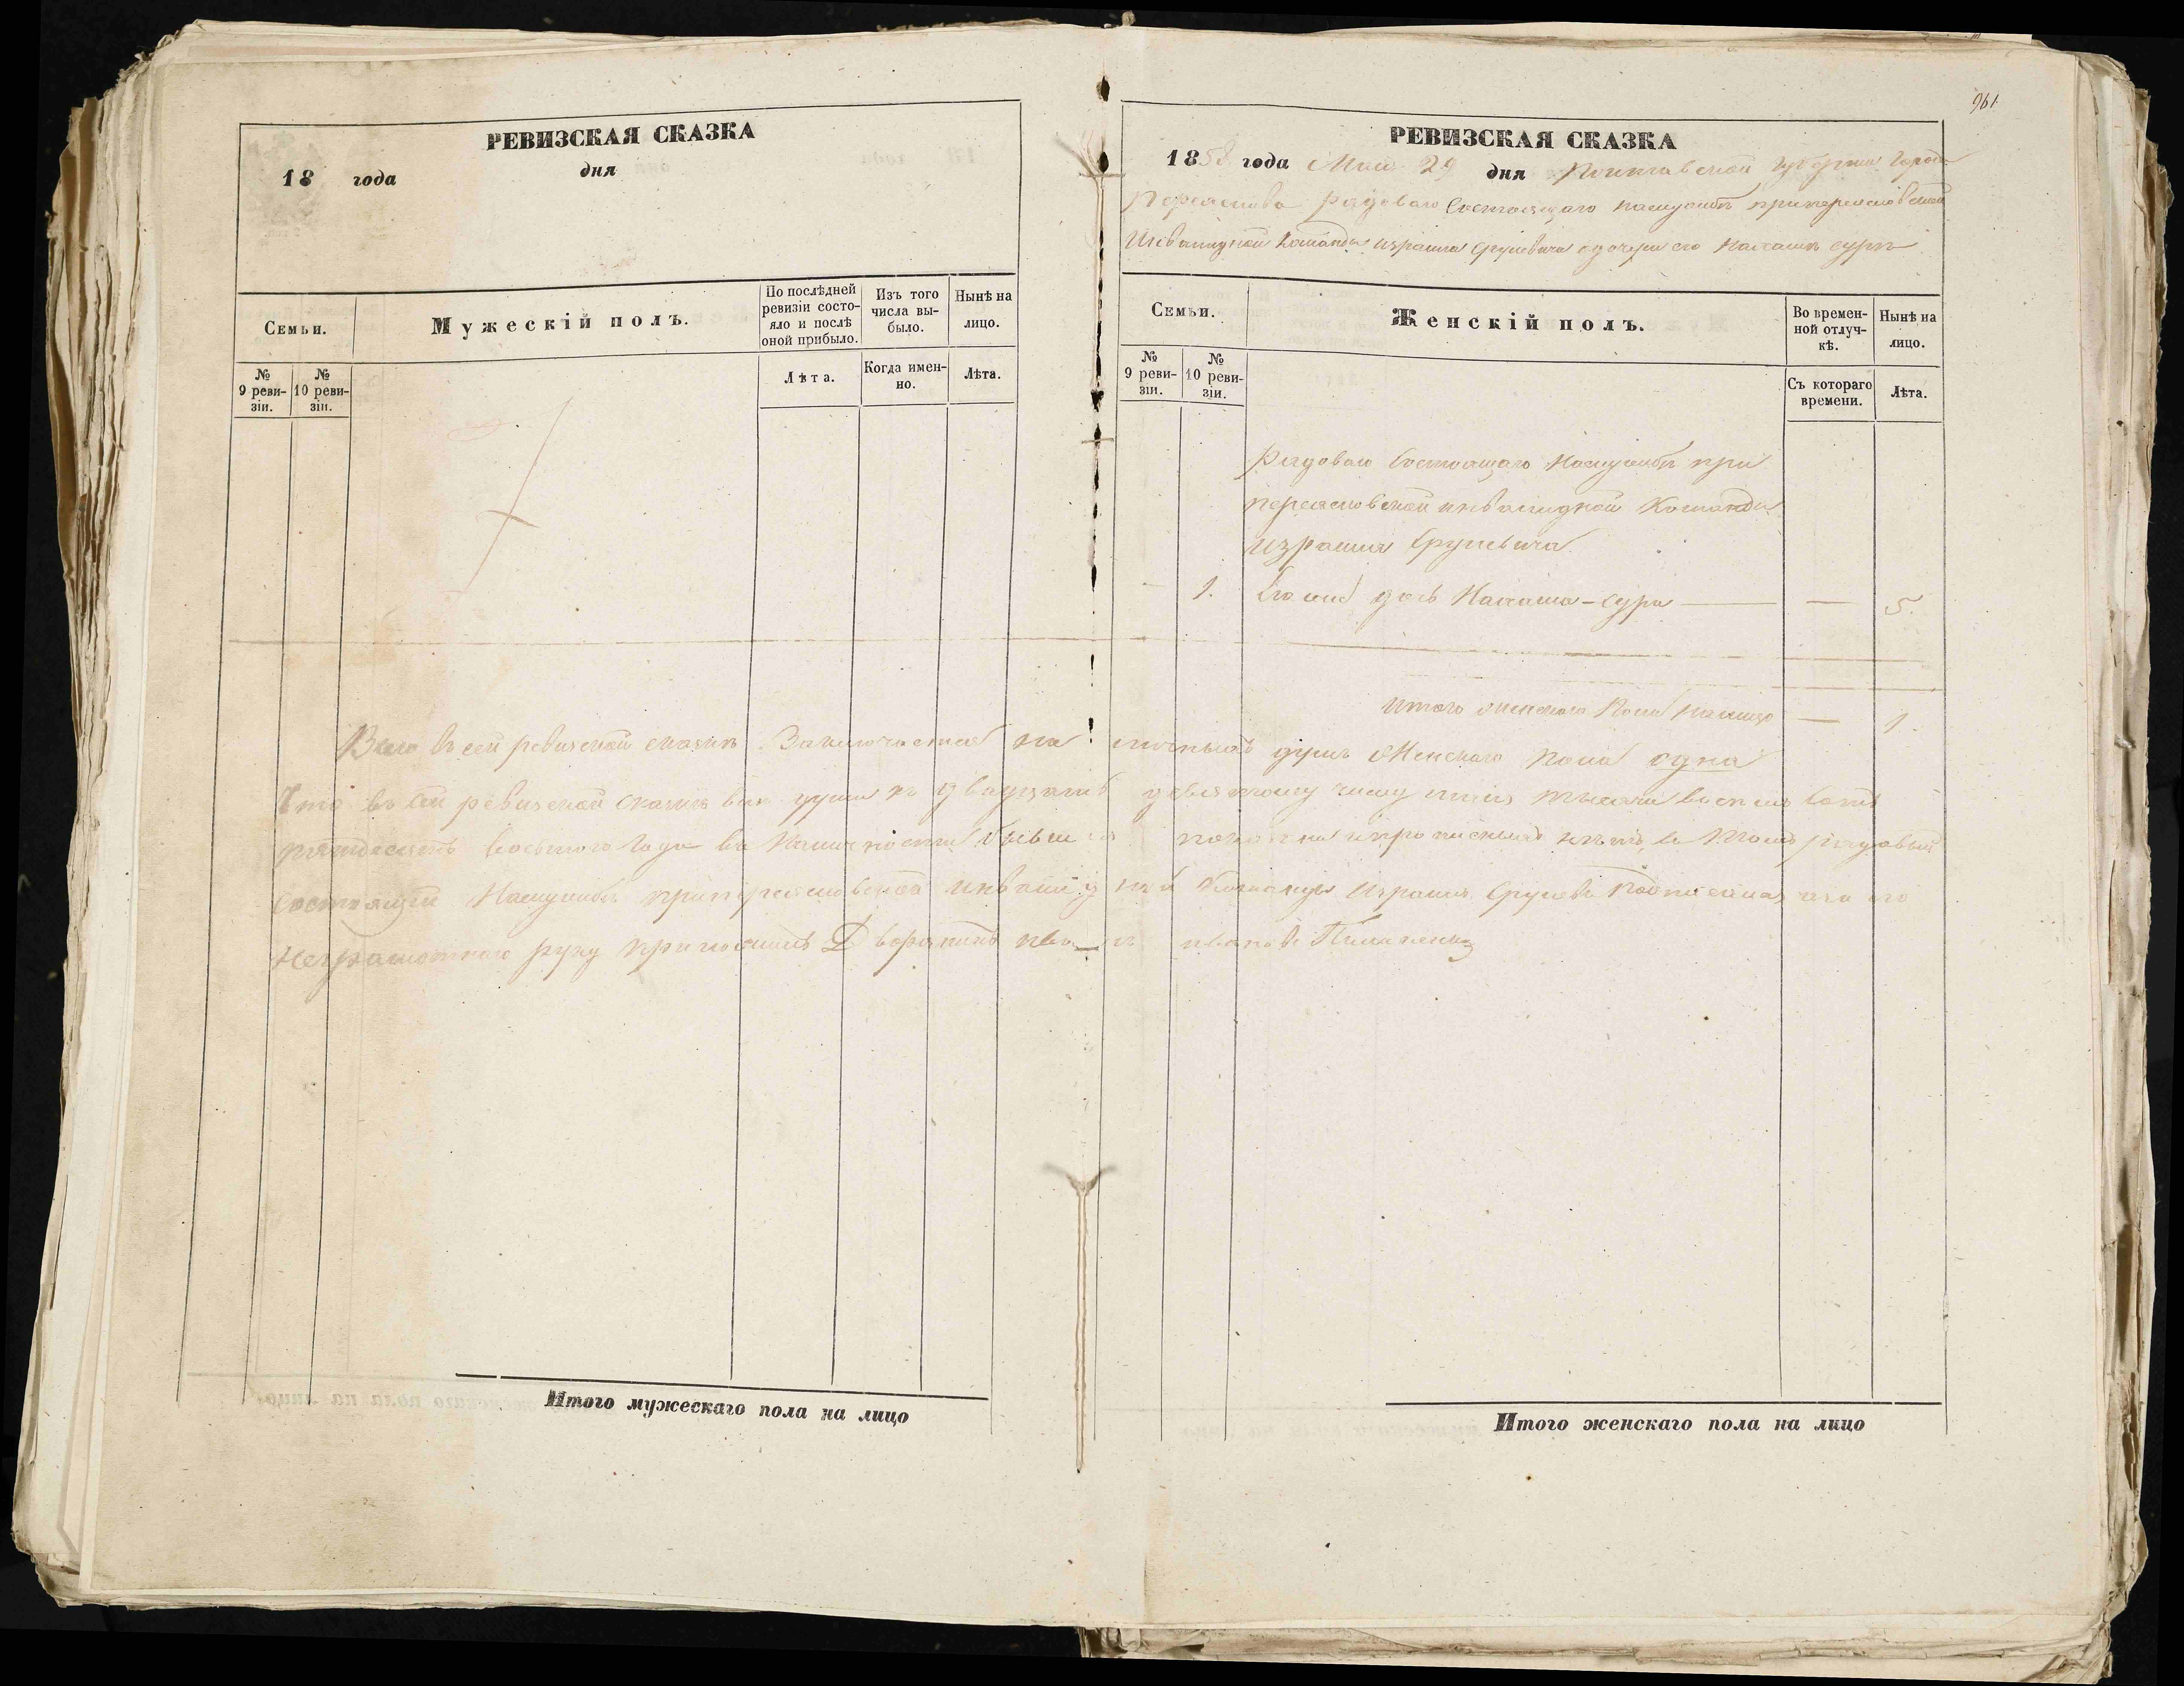 961
РЕВИЗСКАЯ СКАЗКА
18 года дня
Семьи.
Мужескій полъ.
По послѣдней ревизіи состояло и послѣ оной прибыло.
Изъ того числа выбыло.
Нынѣ на лицо.
№ 9 ревизіи.
№ 10 ревизіи.
Лѣта.
Когда именно.
Лѣта.
Итого мужескаго пола на лицо
РЕВИЗСКАЯ СКАЗКА
1858 года Мая 29 дня Полтавской губернии города
Переяслова рядоваго состоящаго наслужбѣ припереяславской
Инвалидной команды Израиля о дочери его сурѣ
Семьи.
Женскій полъ.
Во временной отлучкѣ.
Нынѣ на лицо.
№ 9 ревизіи.
№ 10 ревизіи.
Съ котораго времени.
Лѣта.
Рядоваго состоящаго Наслужбѣ при
переясловской инвалидной команды
Израиля
1. дочь сура — — 5.
Итого женскаго пола налицо — 1.
Всего въ сей ревизской сказкѣ Заключается на личныхъ душъ Женскаго пола одна
Что въ сей ревизской сказкѣ всѣ души къ двадцать девятому числу тысяча восемь сотъ
пятдесятъ восьмого Года въ Наличности показаны и въ томъ рядовый
состоящій Наслужбѣ припереясловской инвалидной Команды Израиль подписался а за его
неграмотнаго руку приложилъ Дворянинъ
Итого женскаго пола на лицо